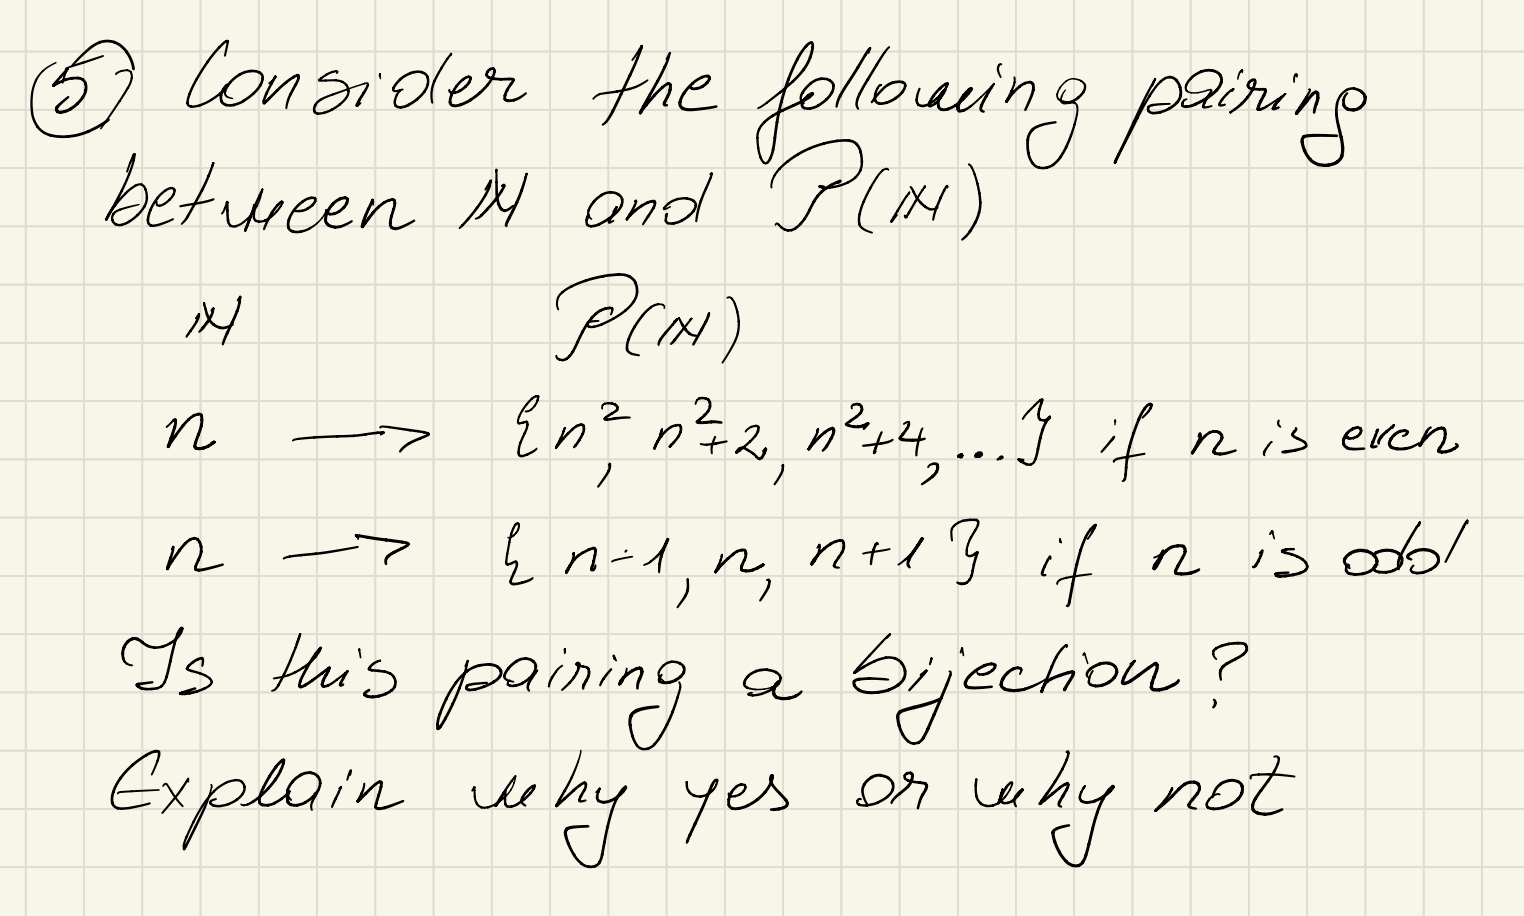 ⑤ Consider the following pairing
between ℕ and 𝒫(ℕ)
ℕ 𝒫(ℕ)
n → {n², n²+2, n²+4, ...} if n is even
n → {n-1, n, n+1} if n is odd
Is this pairing a bijection?
Explain why yes or why not